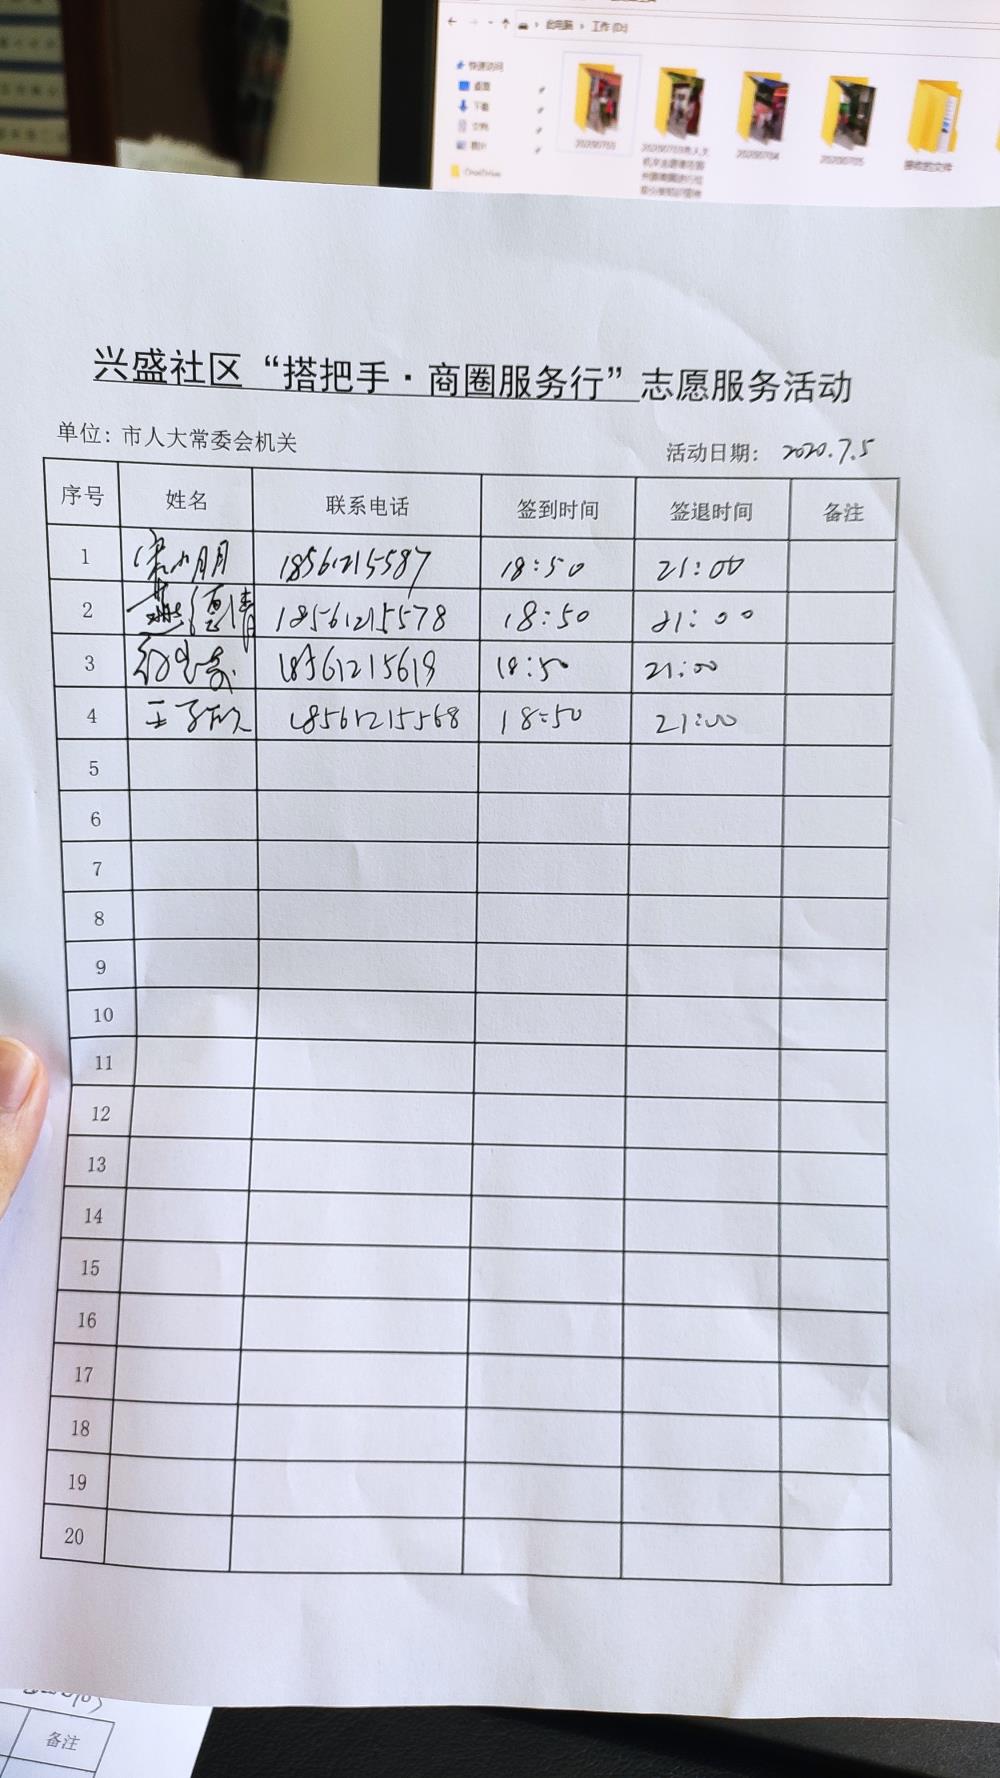 此电脑 › 工作 (D:)
快速访问
桌面
下载
文档
图片
OneDrive
20200703
20200704
20200705
接收的文件
兴盛社区“搭把手·商圈服务行”志愿服务活动
单位：市人大常委会机关
活动日期： 2020.7.5
序号 姓名 联系电话 签到时间 签退时间 备注
1 18561215587 18:50 21:00
2 18561215578 18:50 21:00
3 18561215619 18:50 21:00
4 王子欣 18561215568 18:50 21:00
5
6
7
8
9
10
11
12
13
14
15
16
17
18
19
20
备注